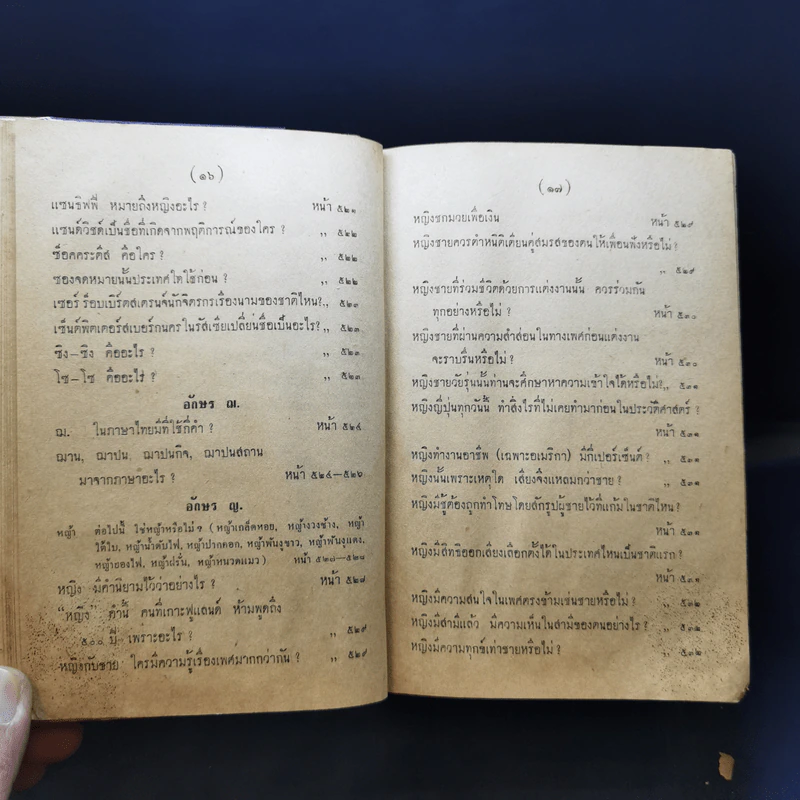 (๑๖)
แซนธิพพี หมายถึงหญิงอะไร ? หน้า ๕๒๑
แซนด์วิชด์เป็นชื่อที่เกิดจากพฤติการณ์ของใคร ? ,, ๕๒๒
ซ็อคคระตีส คือใคร ? ,, ๕๒๒
ซองจดหมายนั้นประเทศใดใช้ก่อน ? ,, ๕๒๒
เซอร์ร็อบเบิร์ตสเตรนจ์นักจิตรกรเรื่องนามของชาติไหน? ,, ๕๒๓
เซ็นต์พิตเตอร์สเบอร์กนครในรัสเซียเปลี่ยนชื่อเป็นอะไร? ,, ๕๒๓
ซิง-ซิง คืออะไร ? ,, ๕๒๓
โซ-โซ คืออะไร ? ,, ๕๒๓
อักษร ฌ.
ฌ. ในภาษาไทยมีที่ใช้กี่คำ ? หน้า ๕๒๔
ฌาน, ฌาปน, ฌาปนกิจ, ฌาปนสถาน
มาจากภาษาอะไร ? หน้า ๕๒๔—๕๒๖
อักษร ญ.
หญ้า ต่อไปนี้ ใช่หญ้าหรือไม่ ? (หญ้าเกล็ดหอย, หญ้างวงช้าง, หญ้า
ใต้ใบ, หญ้าน้ำดับไฟ, หญ้าปากคอก, หญ้าพันงูขาว, หญ้าพันงูแดง,
หญ้ายองไฟ, หญ้าฝรั่น, หญ้าหนวดแมว) หน้า ๕๒๗—๕๒๘
หญิง มีคำนิยามไว้ว่าอย่างไร ? หน้า ๕๒๘
“หญิง” คำนี้ คนที่เกาะฟูแลนด์ ห้ามพูดถึง
๕๐๐ ปี เพราะอะไร ? ,, ๕๒๙
หญิงกับชาย ใครมีความรู้เรื่องเพศมากกว่ากัน ? ,, ๕๒๙
(๑๗)
หญิงชกมวยเพื่อเงิน หน้า ๕๒๙
หญิงชายควรตำหนิติเตียนคู่สมรสของตน ให้เพื่อนฟังหรือไม่ ?
,, ๕๒๙
หญิงชายที่ร่วมชีวิตด้วยการแต่งงานนั้น ควรร่วมกัน
ทุกอย่างหรือไม่ ? หน้า ๕๓๐
หญิงชายที่ผ่านความสำส่อนในทางเพศก่อนแต่งงาน
จะราบรื่นหรือไม่ ? หน้า ๕๓๐
หญิงชายวัยรุ่นนั้นท่านจะศึกษาหาความเข้าใจได้หรือไม่? ,, ๕๓๑
หญิงญี่ปุ่นทุกวันนี้ ทำสิ่งไรที่ไม่เคยทำมาก่อนในประวัติศาสตร์ ?
หน้า ๕๓๑
หญิงทำงานอาชีพ (เฉพาะอเมริกา) มีกี่เปอร์เซ็นต์ ? ,, ๕๓๑
หญิงนั้นเพราะเหตุใด เสียงจึงแหลมกว่าชาย ? ,, ๕๓๑
หญิงมีชู้ต้องถูกทำโทษโดยสักรูปผู้ชายไว้ที่แก้มในชาติไหน ?
หน้า ๕๓๑
หญิงมีสิทธิออกเสียงเลือกตั้งได้ในประเทศไหนเป็นชาติแรก ?
หน้า ๕๓๑
หญิงมีความสนใจในเพศตรงข้ามเช่นชายหรือไม่ ? ,, ๕๓๒
หญิงมีสามีแล้ว มีความเห็นในสามีของตนอย่างไร ? ,, ๕๓๒
หญิงมีความทุกข์เท่าชายหรือไม่ ? ,, ๕๓๒